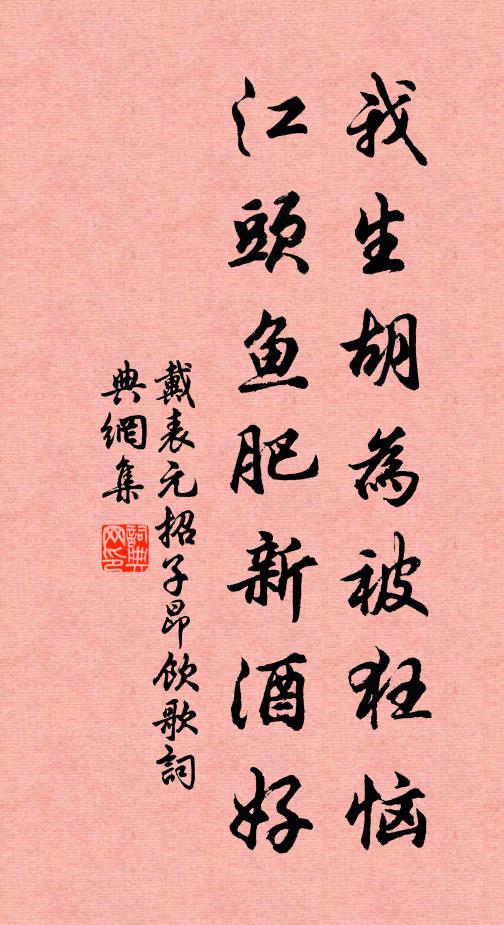 我生胡為被狂恼
江頭鱼肥新酒好
戴表元招子昂饮歌詞
典網集
詞典网印